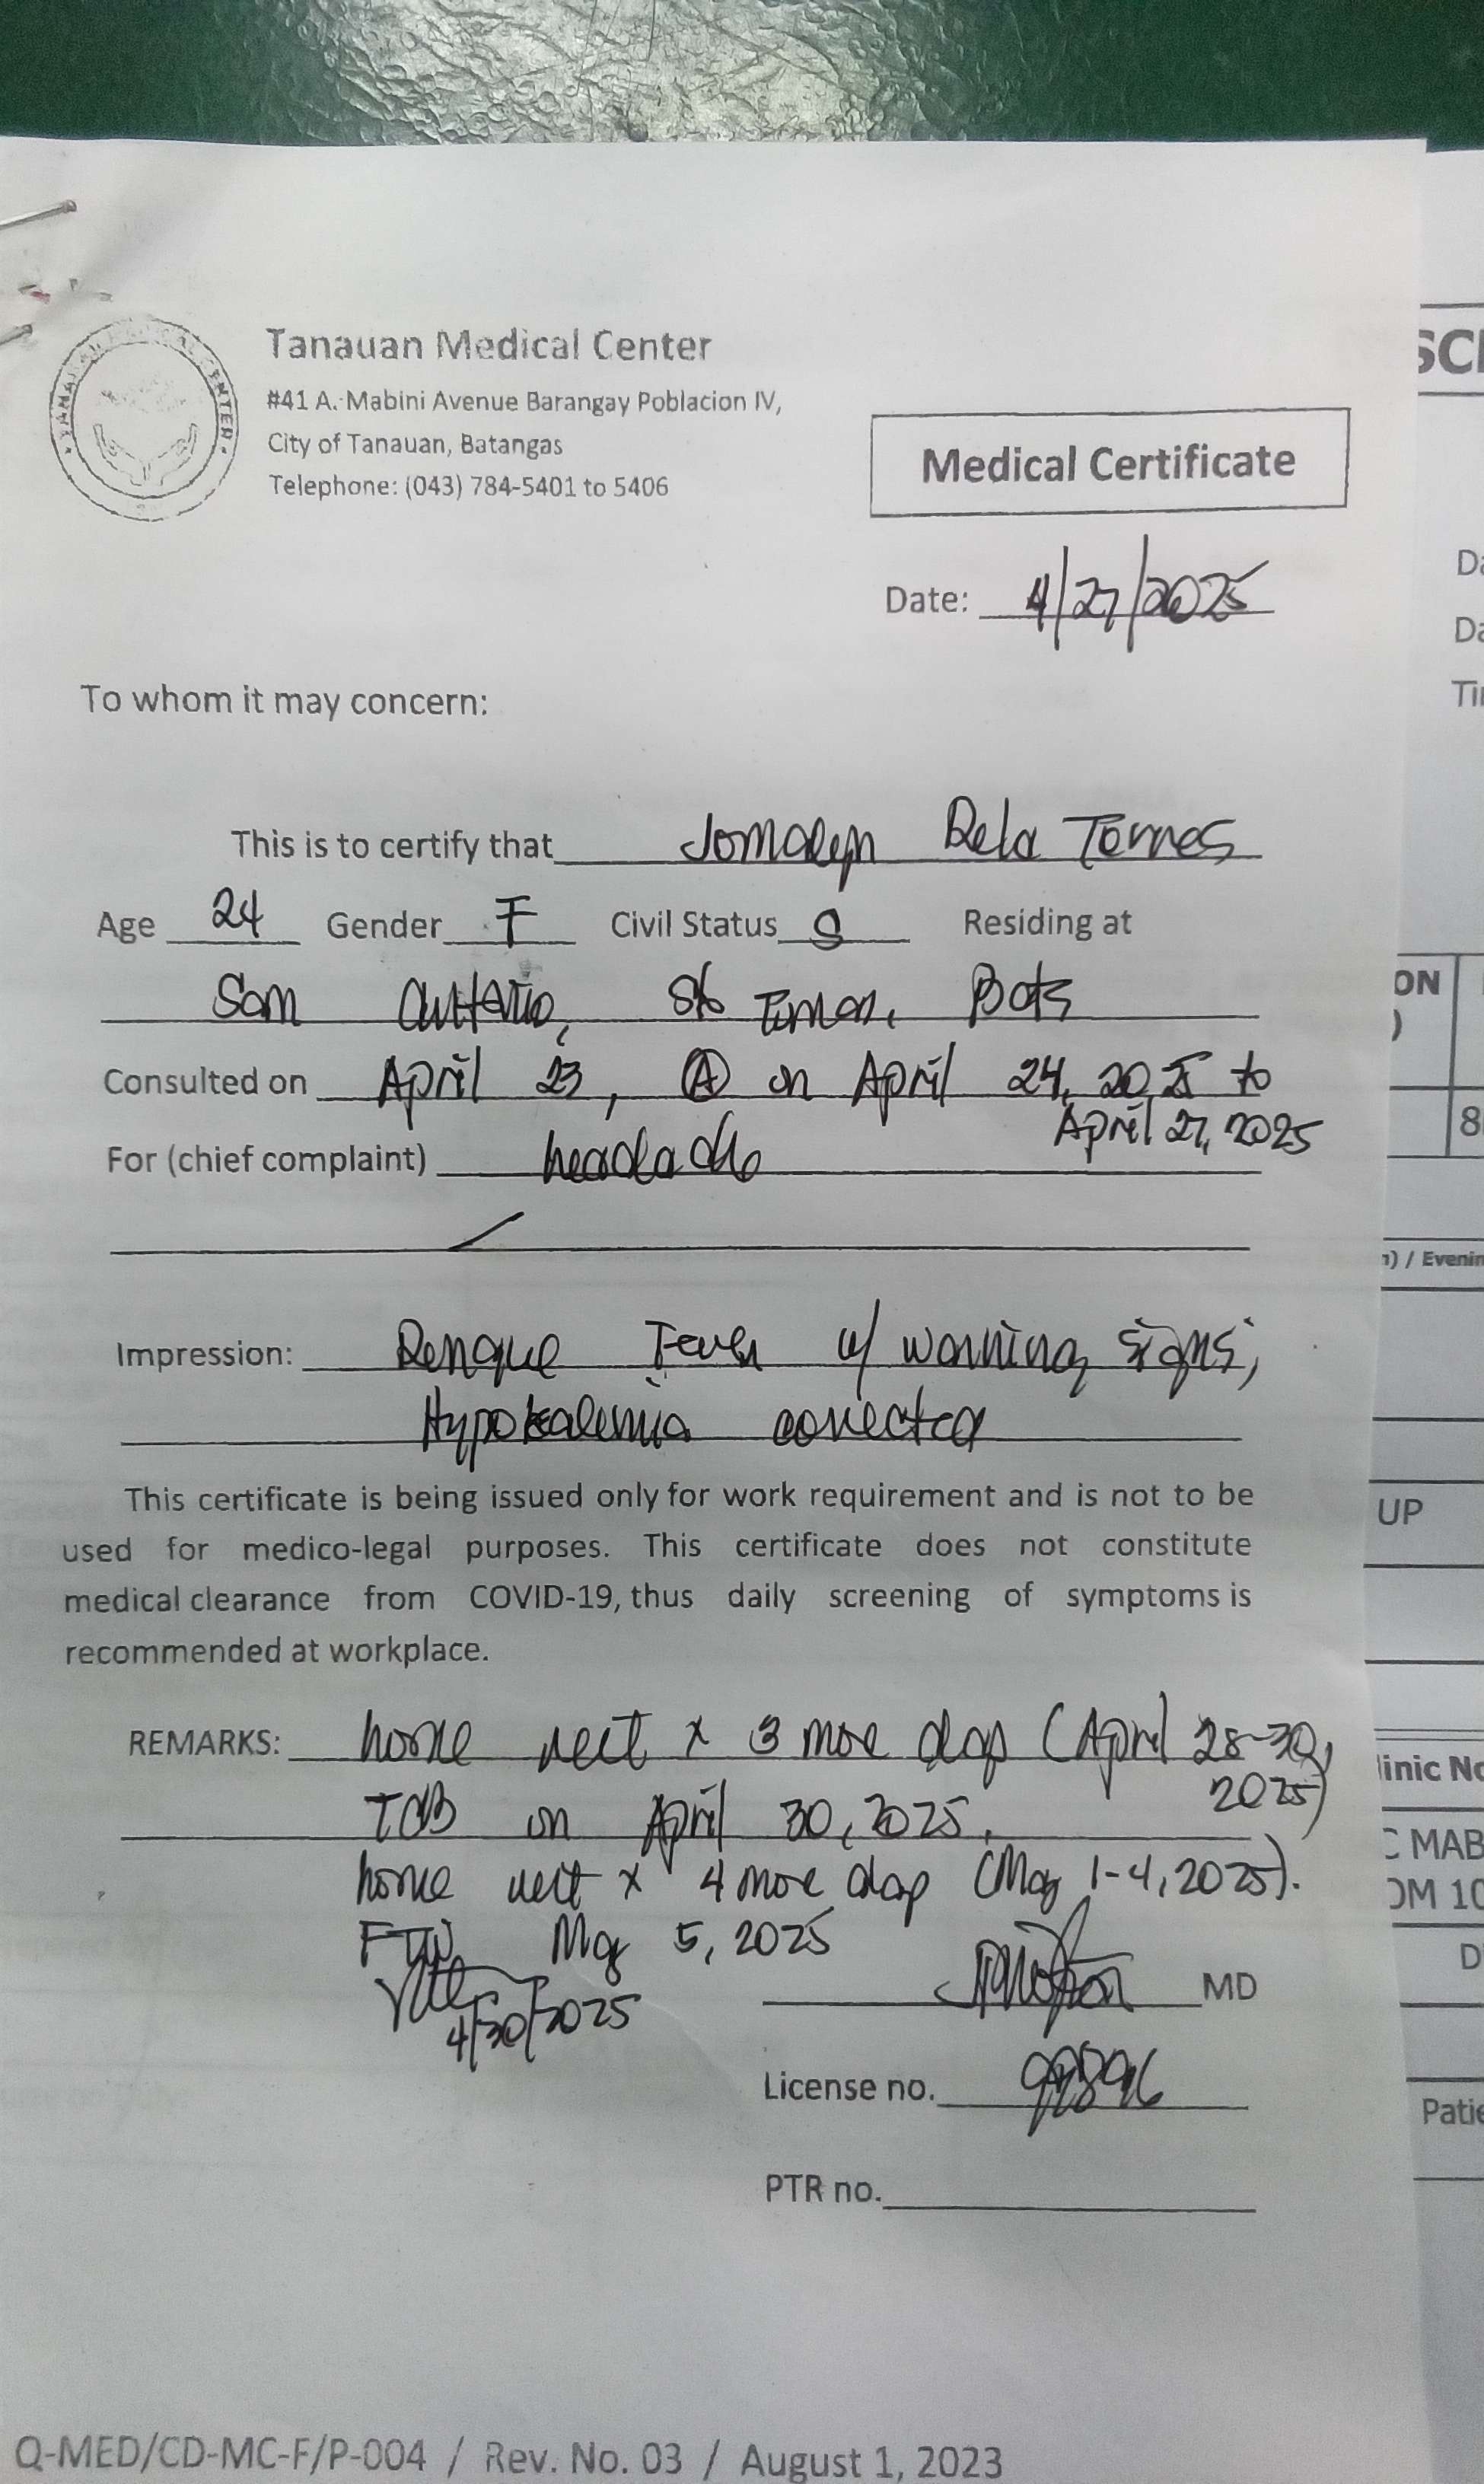 Tanauan Medical Center
#41 A. Mabini Avenue Barangay Poblacion IV,
City of Tanauan, Batangas
Telephone: (043) 784-5401 to 5406
Medical Certificate
Date: 4/27/2025
To whom it may concern:
This is to certify that Jomalyn Dela Torres
Age 24 Gender F Civil Status S Residing at
San Antonio, Sto Tomas, Bats
Consulted on April 23, Ⓐ on April 24, 2025 to
April 27, 2025
For (chief complaint) headache
Impression: Dengue Fever w/ warning signs;
Hypokalemia corrected
This certificate is being issued only for work requirement and is not to be
used for medico-legal purposes. This certificate does not constitute
medical clearance from COVID-19, thus daily screening of symptoms is
recommended at workplace.
REMARKS: home rest x 3 more days (April 28-30,
2025)
TCB on April 30, 2025.
home rest x 4 more days (May 1-4, 2025).
FTW May 5, 2025
4/30/2025
MD
License no.
PTR no.
Q-MED/CD-MC-F/P-004 / Rev. No. 03 / August 1, 2023
SC
Da
Da
ON
)
8
n) / Evenin
UP
linic No
C MAB
OM 10
D
Patie